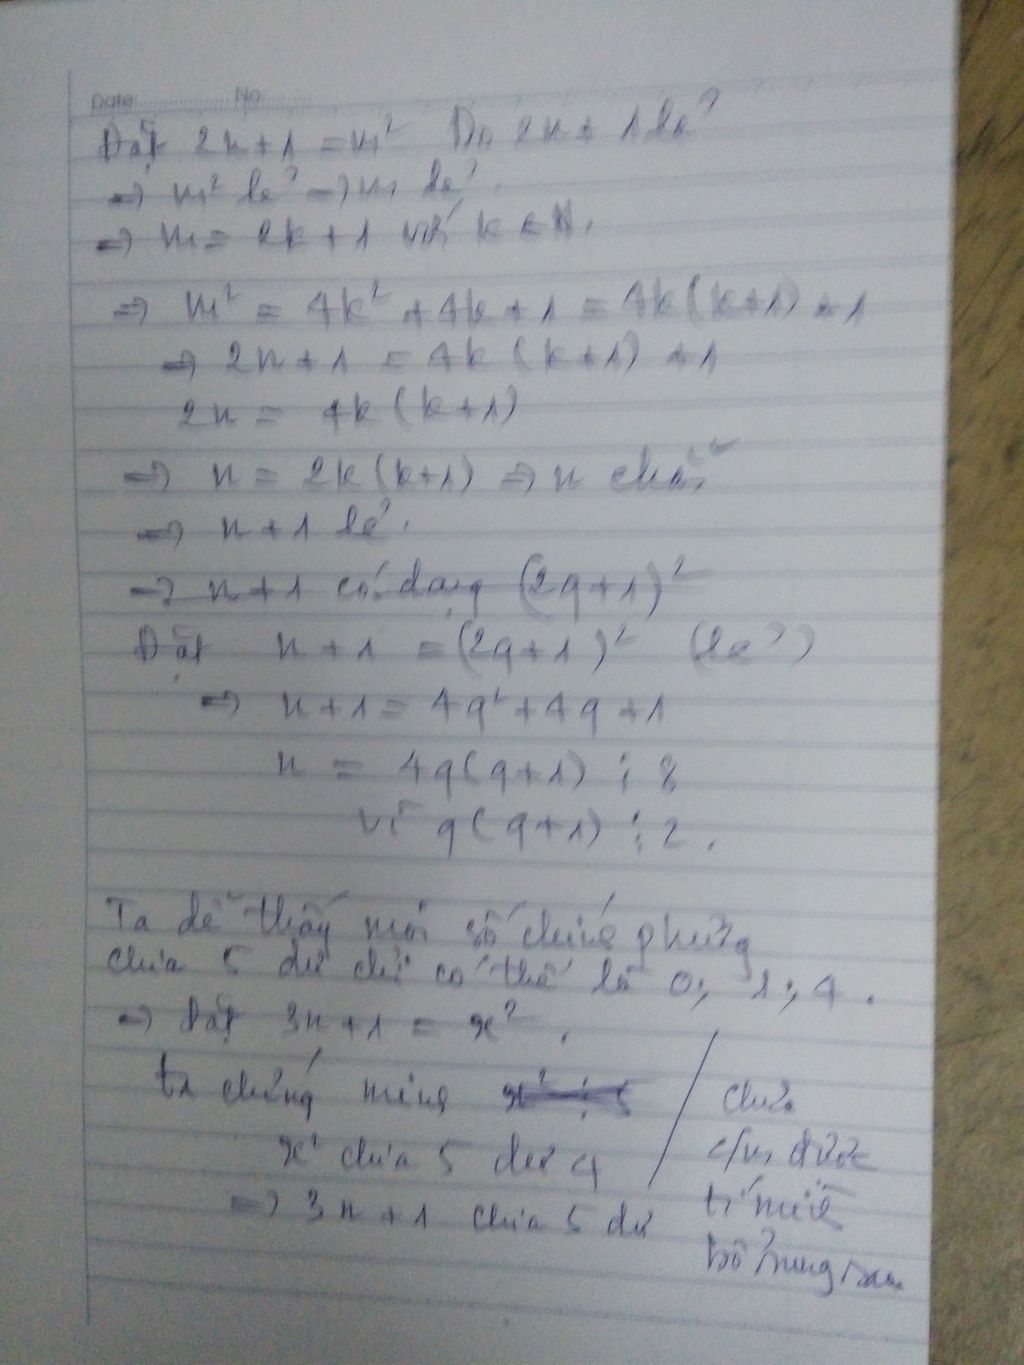 Date No
Đặt 2n+1 = m² Do 2n+1 lẻ
=> m² lẻ => m lẻ.
=> m = 2k+1 với k ∈ N.
=> m² = 4k² + 4k + 1 = 4k(k+1) + 1
=> 2n+1 = 4k(k+1) + 1
2n = 4k(k+1)
=> n = 2k(k+1) => n chẵn
=> n+1 lẻ.
=> n+1 có dạng (2q+1)²
Đặt n+1 = (2q+1)² (lẻ)
=> n+1 = 4q²+4q+1
n = 4q(q+1) ⋮ 8
vì q(q+1) ⋮ 2.
Ta dễ thấy mọi số chính phương
chia 5 dư chỉ có thể là 0; 1; 4.
=> Đặt 3n+1 = x².
ta chứng minh
x² chia 5 dư 4
=> 3n+1 chia 5 dư
chưa
c/m được
tí nữa
bổ sung sau